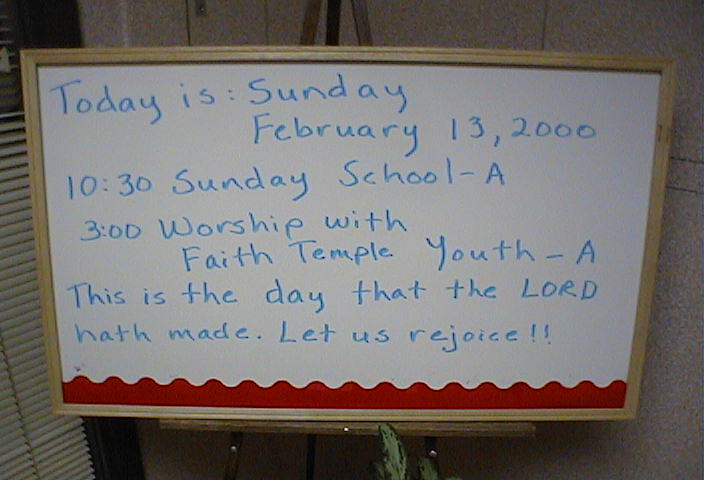 Today is: Sunday
February 13, 2000
10:30 Sunday School-A
3:00 Worship with
Faith Temple Youth-A
This is the day that the LORD
hath made. Let us rejoice!!